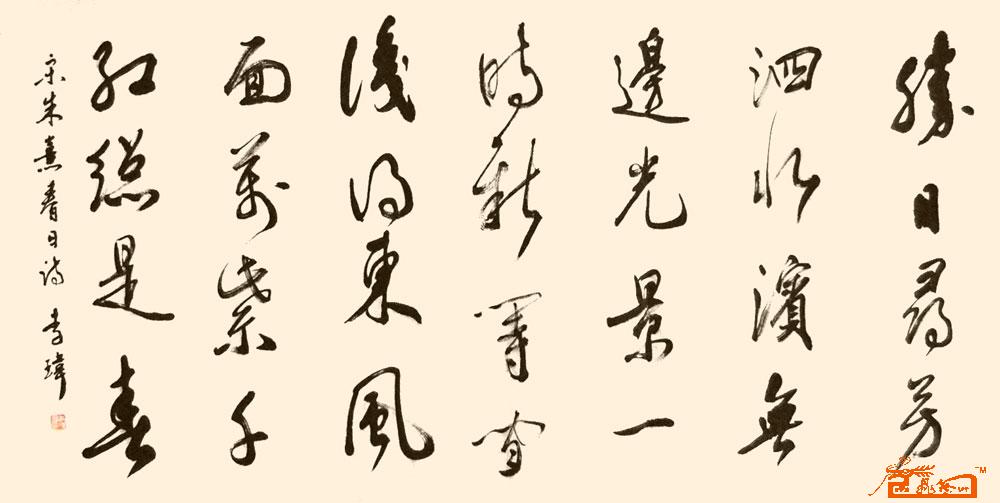 勝日尋芳
泗水濱無
邊光景一
時新等閒
識得東風
面萬紫千
紅總是春
宋朱熹春日詩 李瑋